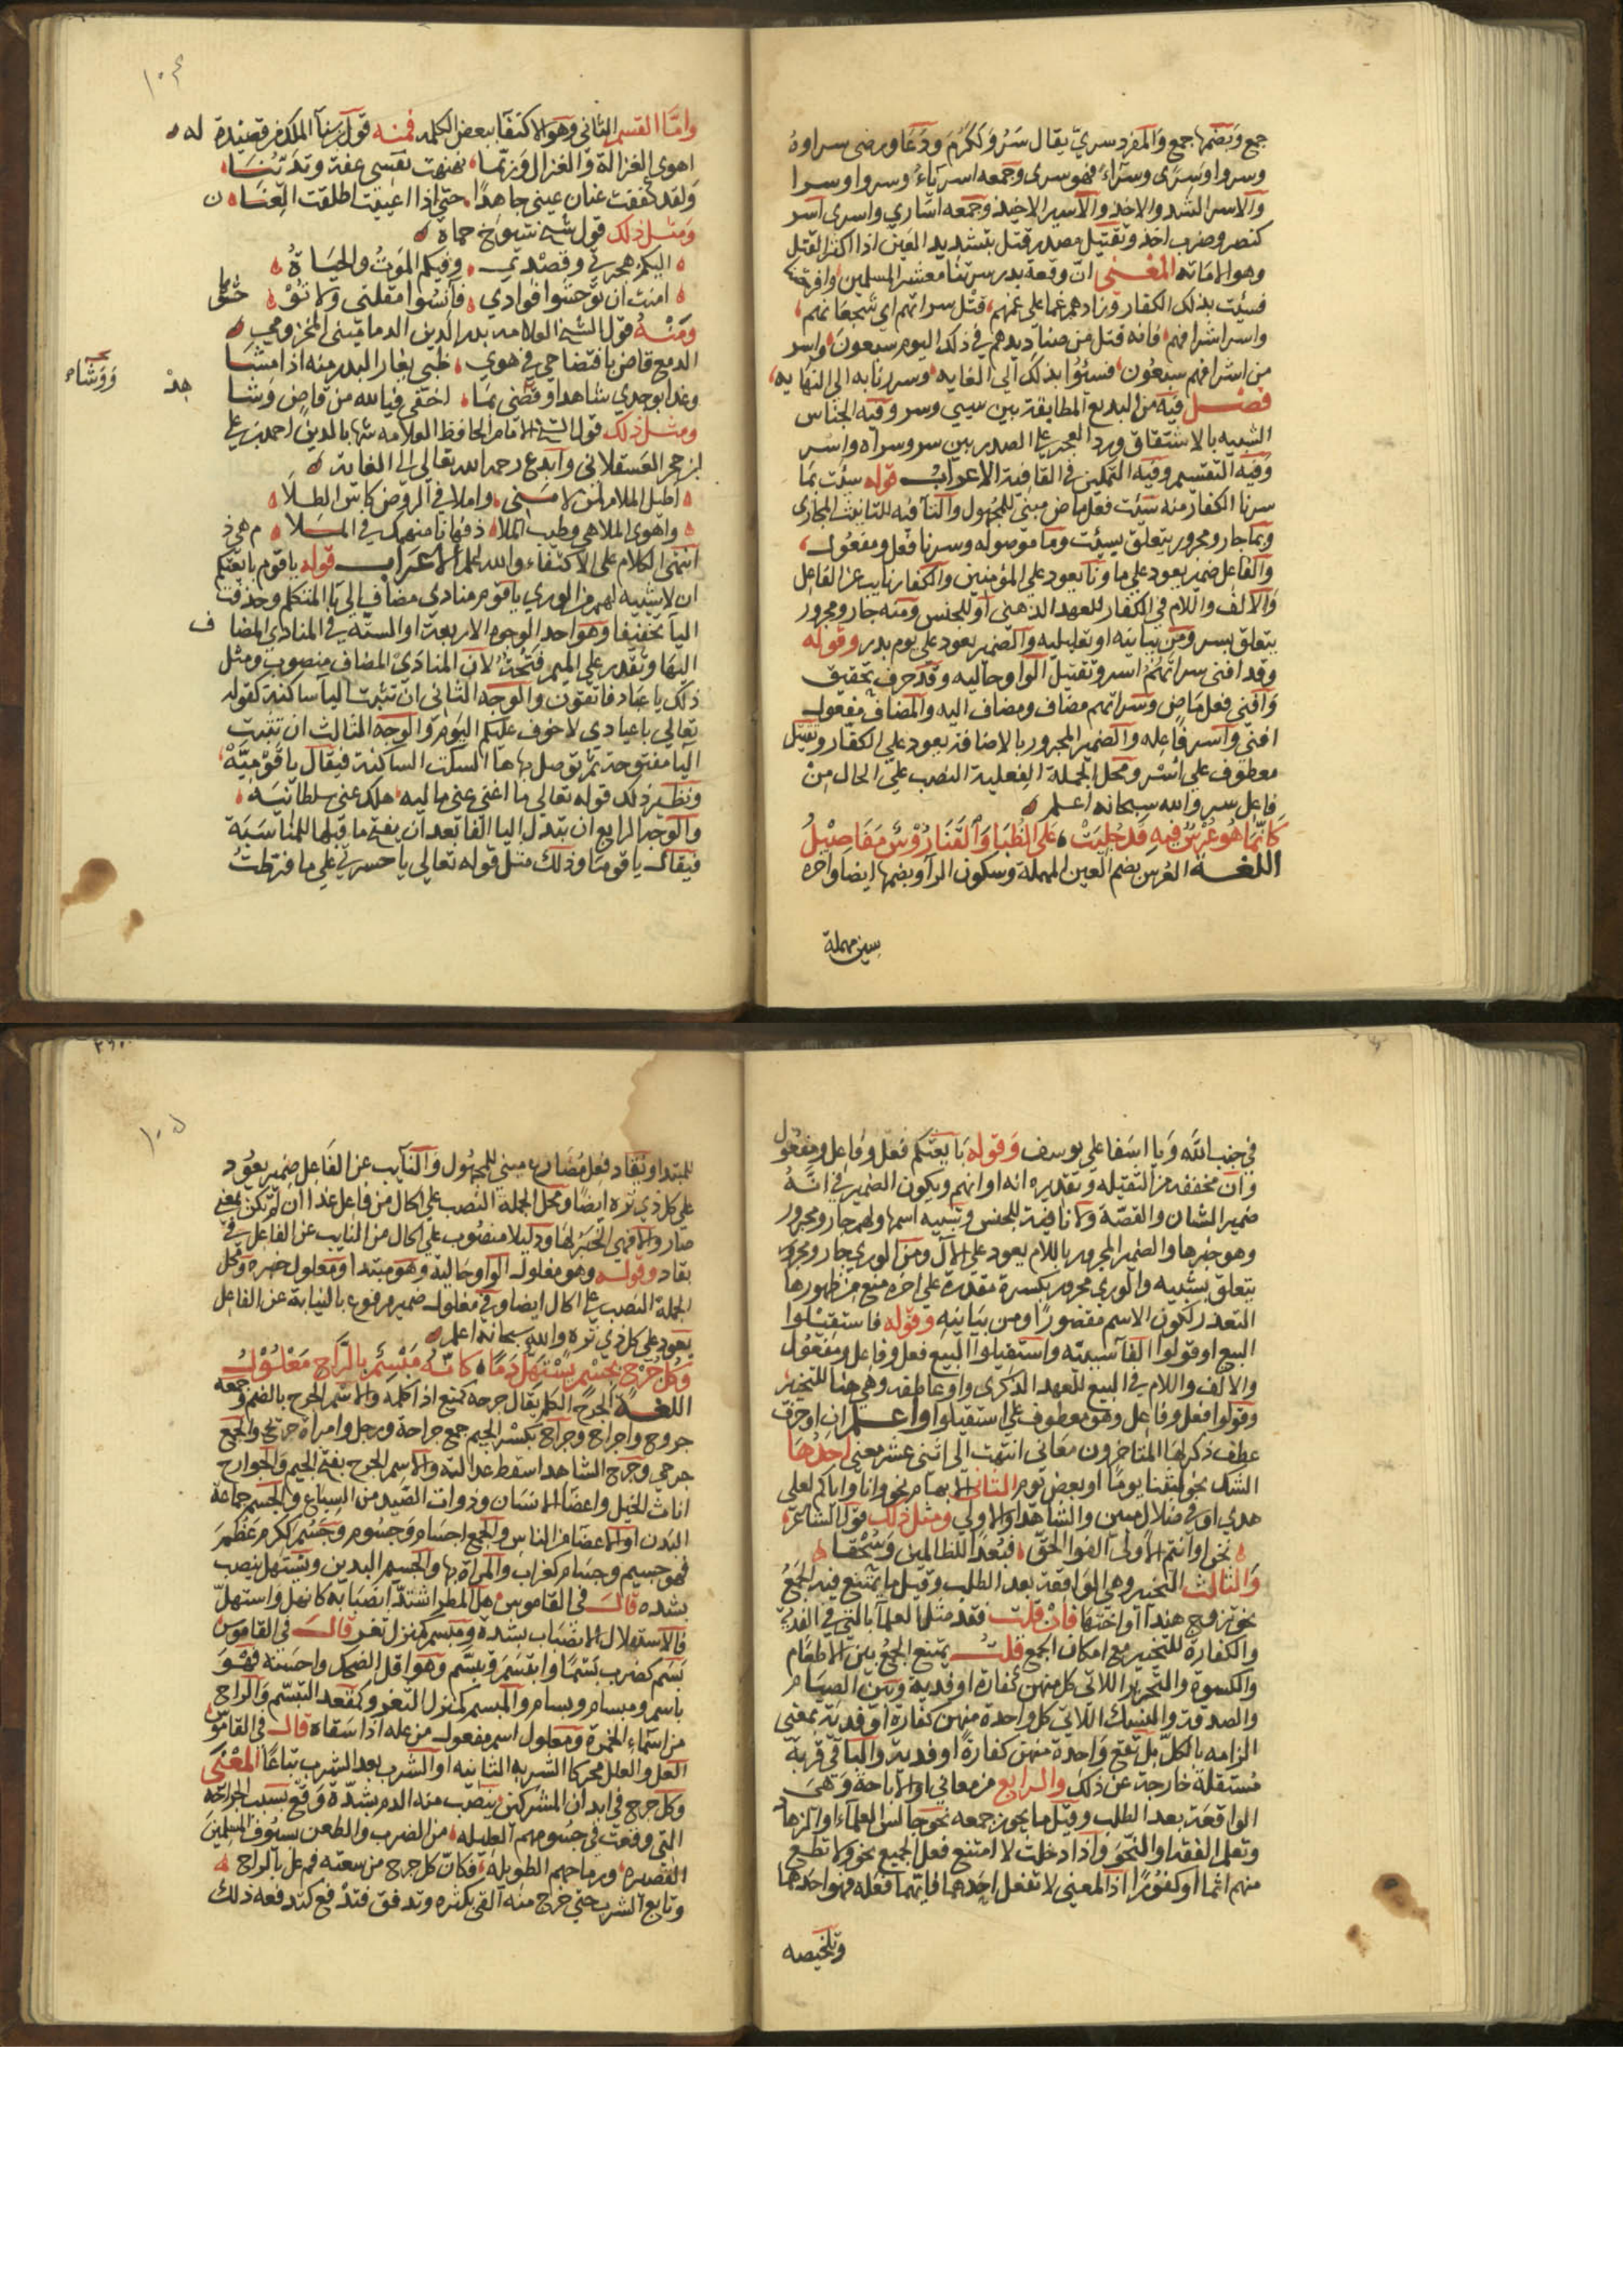 جمع وبضمها جمع والمفرد سري يقال سَرُوَ ككَرُمَ ودَعَا ورضى سراوهُ
وسروا وسَرًى وسَرَاءً فهو سرى وجمعه اسرياءُ وسروا وسرا
والاسر الشد والاخذ والاسير الاخيذ وجمعه اسَارى واسرى اسر
كنصر وضرب اخذ وتقتيل مصدر قتل بتشديد العين اذا اكثر القتل
وهو الاماتة المعنى ان وقعة بدر سرتنا معشر المسلمين
فسيئت بذلك الكفار وزادهم غما على غمهم قتل سراتهم اى شجعانهم
واسر اشرافهم فانه قتل من صناديدهم في ذلك اليوم سبعون واسر
من اشرافهم سبعون فسئوا بذلك الى الغايه وسررنا به الى النهايه
فصل فيه من البديع المطابقة بين سيئ وسر وفيه الجناس
الشبيه بالاشتقاق ورد العجز على الصدر بين سر وسراه واسر
وفيه التقسيم وفيه التمكين في القافية الاعراب قوله سيئت بما
سرنا الكفار منه سيئت فعل ماض مبنى للمجهول والتآ فيه للتانيث المجازى
وبما جار ومجرور يتعلق بسيئت وما موصوله وسرنا فعل ومفعول
والفاعل ضمير يعود على ما ونا يعود على المؤمنين والكفار نايب عن الفاعل
والالف واللام في الكفار للعهد الذهنى او للجنس ومنه جار ومجرور
يتعلق بسر ومن بيانيه او تعليليه والضمير يعود على يوم بدر وقوله
وقد افنى سراتهُمُ اسر وتقتيل الواو حاليه وقد حرف تحقيق
وافنى فعل ماض وسراتهم مضاف ومضاف اليه والمضاف مفعول
افنى واسر فاعله والضمير المجرور بالاضافة يعود على الكفار وتقتيل
معطوف على اسْر ومحل الجملة الفعلية النصب على الحال مِنْ
فاعل سر والله سبحانه اعلم
كَانّمَا هُوَ عُرْسٌ فيهِ قَدْ جُلِيَتْ عَلى الظُبَا وَالقَنَا رُؤْسٌ مَفَاصِيْلُ
اللغة العُرس بضم العين المهملة وسكون الرآ وبضمها ايضا واخره
سين مهملة
١٠٤
وامّا القسم الثاني وهو الاكتفآ ببعض الكلمه فمنه قول بن سنآ الملك من قصيدة له
اهوى الغزالة والغزال وربّما نهنهت نفسى عفة وتديُّنَا
ولقد كففت عنان عينى جاهدًا حتى اذا اعييت اطلقت العِنَا ن
ومثل ذلك قول شيخ شيوخ حماه
اليكم هجرتى وقصْدى وفيكم الموتُ والحيَاةُ
امنت ان توحشوا فوادى فآنسُوا مقلتى ولا تَوْ حشُوا
ومنْهُ قول الشيخ العلامه بدر الدين الدمامينى المخزومى
الدمع قاض بافتضاحى في هوى ظبى يغار البدر منه اذا مشا
وغدا بوجدى شاهدا وقضى بمَا اخفى فيا لله من قاض وشا هدْ
ووشاء
ومثل ذلك قول الشيخ الامام الحافظ العلامه شهاب الدين احمد بن على
ابن حجر العسقلانى وابدع رحمه الله تعالى الى الغاية
اطيل الملام لمن لامنى واملا في الروض كاس الطلا
واهوى الملاهى وطيب الملا ذ فها انا منهمك في المَلا م هى ذ
انتهى الكلام على الاكتفاء والله اعلم الاعراب قوله يا قوم بايعتكم
ان لا شبيه لهم من الورى يا قوم منادى مضاف الى يآ المتكلم وحذفت
اليآ تخفيفا وهو احد الوجوه الاربعة او الستة في المنادى المضا ف
اليها وتقدر على الميم فتحةٌ لان المنادىْ المضاف منصوب ومثل
ذلك يا عباد فاتقون والوجه الثانى ان تثبت اليآ ساكنة كقوله
تعالى يا عبادى لا خوف عليكم اليوم والوجه الثالث ان تثبت
اليا مفتوحة ثم توصل بها هآ السكت الساكنة فيقال يا قوْمِيَهْ
ونظير ذلك قوله تعالى ما اغنى عنى ماليه هلك عنى سلطانيه
والوجه الرابع ان يتدل اليا الفا بعد ان يفتح ما قبلها للمناسبَة
فيقال يا قومَا وذلك مثل قوله تعالى يا حسرتى على ما فرطتُ
في جنب الله ويا اسَفا على يوسف وقوله بايعتكم فعل وفاعل ومفعول
وان مخففه من الثقيله وتقديره انه او انهم ويكون الضمير في انّهُ
ضمير الشان والقصة ولا نافية للجنس وشبيه اسمها ولهم جار ومجرور
وهو خبرها والضمير المجرور باللام يعود على الآل ومن الورى جار ومجرور
يتعلق بشبيه والورى مجرور بكسرة مقدرة على اخره منع من ظهورها
التعذر لكون الاسم مقصورًا ومن بيانيه وقوله فاستقيْلوا
البيع او قولوا الفآ سببيّه واستقيلوا البيع فعل وفاعل ومفعول
والالف واللام في البيع للعهد الذكرى واو عاطفه وهى هنا للتخيير
وقولوا فعل وفاعل وهو معطوف على استقيلوا واعلم ان او حرف
عطف ذكر لها المتاخرون معانى انتهت الى اثنى عشر معنى احدُهَا
الشك نحو لبثنا يومًا او بعض يوم الثانى الابهام نحو وانا او اياكم لعلى
هدى او في ضلال مبين والشاهد او الاولى ومثل ذلك قول الشاعر
نحن او انتم الاولى الفوا الحق فبُعدًا للظالمين وسُحْقا
والثالث التخيير وهى الواقعة بعد الطلب وقيل ما يمتنع فيه الجمعُ
نحو تزوج هندا او اختها فان قلت فقد مثل العلمآ بالتى في الفدية
والكفارة للتخيير مع امكان الجمع قلتُ يمتنع الجمعُ بين الاطعام
والكسوة والتحرير اللاتى كل منهن كفارة او فدية وبين الصيام
والصدقة والنسك اللاتى كل واحدة منهن كفارة او فدية بمعنى
الزامه بالكل بل تقع واحدة منهن كفارةً او فدية والباقى قربةً
مستقلة خارجة عن ذلك والرابع من معانى او الاباحة وهىَ
الواقعَة بعد الطلب وقيل ما يجوز جمعه نحو جالس العلمآء او الزهاد
وتعلم الفقه او النحو واذا دخلت لا امتنع فعل الجميع نحو ولا تطع
منهم اثما او كفورًا اذ المعنى لا تفعل احدهما فايّهما فعله فهو احدهما
وتلخيصه
١٠٥
للمبتدا ويقاد فعل مُضارع مبنى للمجهول والنايب عن الفاعل ضمير يعود
على كل ذى تره ايضًا ومحل الجملة النصب على الحال من فاعل غدا ان لم تكن بمعنى
صار والا فهى الخبر لها ودليلا منصوب على الحال من النايب عن الفاعل في
يقاد وقوله وهو مغلول الواو حاليه وهو مبتدا ومغلول خبره ومحل
الجملة النصب على الحال ايضا وفي مغلول ضمير مرفوع بالنيابة عن الفاعل
يعود على كل ذى تره والله سبحانه اعلم
وَكلُّ جُرْحٍ بجسْمٍ يسْتهلّ دَمًا كانّهُ مَبْسِمٌ بالرّاحِ مَعْلُوْلُ
اللغة الجرح الكلم يقال جرحه كمنع اذا كلمه والاسم الجرح بالضم وجمعه
جروح واجراح وجراح بكسْر الجيم جمع جراحة ورجل وامراة جريح والجمع
جرحى وجرح الشاهد اسقط عدالته والاسم الجرح بفتح الجيم والجوارح
اناث الخيل واعضآ الانسان وذوات الصّيد من السباع والجسم جماعة
البدن او الاعضآ من الناس والجمع اجسام وجسُوم وجَسُمَ ككرم عَظُمَ
فهو جسيم وجسام كغراب والمراة بها والجسم البدين ويستهل ينصب
بشده قال في القاموس هل المطر اشتدّ انصبابه كانهل واستهلّ
فالاستهلال الانصبَاب بشدة ومبسم كمنزل ثغر قال في القاموس
بسَم كضرب بَسْمًا وابتسم وتبسَّم وهو اقل الضحك واحسنه فهْوَ
باسم ومبسام وبسام والمبسم كمنزل الثغر وكمقعد التبسّم والراح
من اسمآء الخمرة ومعلول اسم مفعول من عله اذا سقاه قال في القاموس
العل والعلل محركا الشربه الثانيه او الشرب بعد الشرب تباعًا المعنى
وكل جرح في ابدان المشركين ينصب منه الدم بشدّة وقع بسبب الجراحة
التى وقعت في جسُومهم العليله من الضرب والطعن بسيُوف المسلمين
القصيره ورماحهم الطويله فكانّ كل جرح من سعته فم عل بالراح
وتابع الشرب حتى خرج منه القئ بكثره وتدفق فتدْفع كتدفعه ذلك